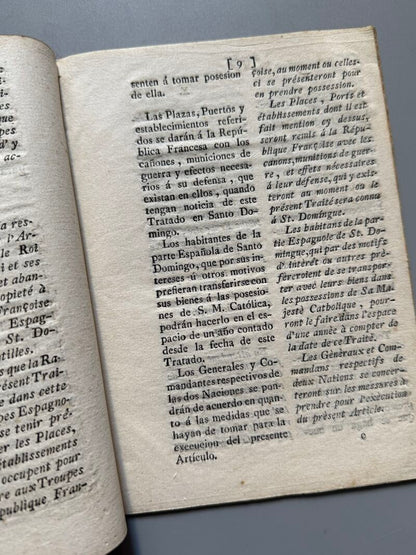 ra res-
l'Ar-
le Roi
i et ses
et aban-
opieté à
Françoise
Espag-
St. Do-
tilles.
s que la Ra
résent Trai-
dans cette
pes Espagno-
se tenir pré-
er les Places,
établissements
occupent pour
re aux Troupes
publique Fran-
[9]
senten á tomar posesion
de ella.
Las Plazas, Puertos y
establecimientos referi-
dos se darán á la Repú-
blica Francesa con los
cañones, municiones de
guerra y efectos necesa-
rios á su defensa, que
existan en ellos, quando
tengan noticia de este
Tratado en Santo Do-
mingo.
Los habitantes de la
parte Española de Santo
Domingo, que por sus in-
tereses ú otros motivos
prefieran transferirse con
sus bienes á las posesio-
nes de S. M. Católica,
podrán hacerlo en el es-
pacio de un año contado
desde la fecha de este
Tratado.
Los Generales y Co-
mandantes respectivos de
las dos Naciones se pon-
drán de acuerdo en quan-
to á las medidas que se
hayan de tomar para la
execucion del presente
Artículo.
çoise, au moment ou celles-
ci se présenteront pour
en prendre possession.
Les Places, Ports et
établissements dont il est
fait mention cy dessus,
seront remis à la Répu-
blique Françoise avec les
canons, munitions de guer-
re, et effets nécessaires
à leur défense, qui y exis-
teront au moment ou le
présent Traité sera connu
à St. Domingue.
Les habitans de la par-
tie Espagnole de St. Do-
mingue, qui par des motifs
d'intérêt ou autres pré-
féreroient de se transpor-
ter avec leurs biens dans
les possessions de Sa Ma-
jesté Catholique, pour-
ront le faire dans l'espace
d'une année à compter de
la date de ce Traité.
Les Généraux et Com-
mandans respectifs des
deux Nations se concer-
teront sur les mesures à
prendre pour l'exécution
du présent Article.